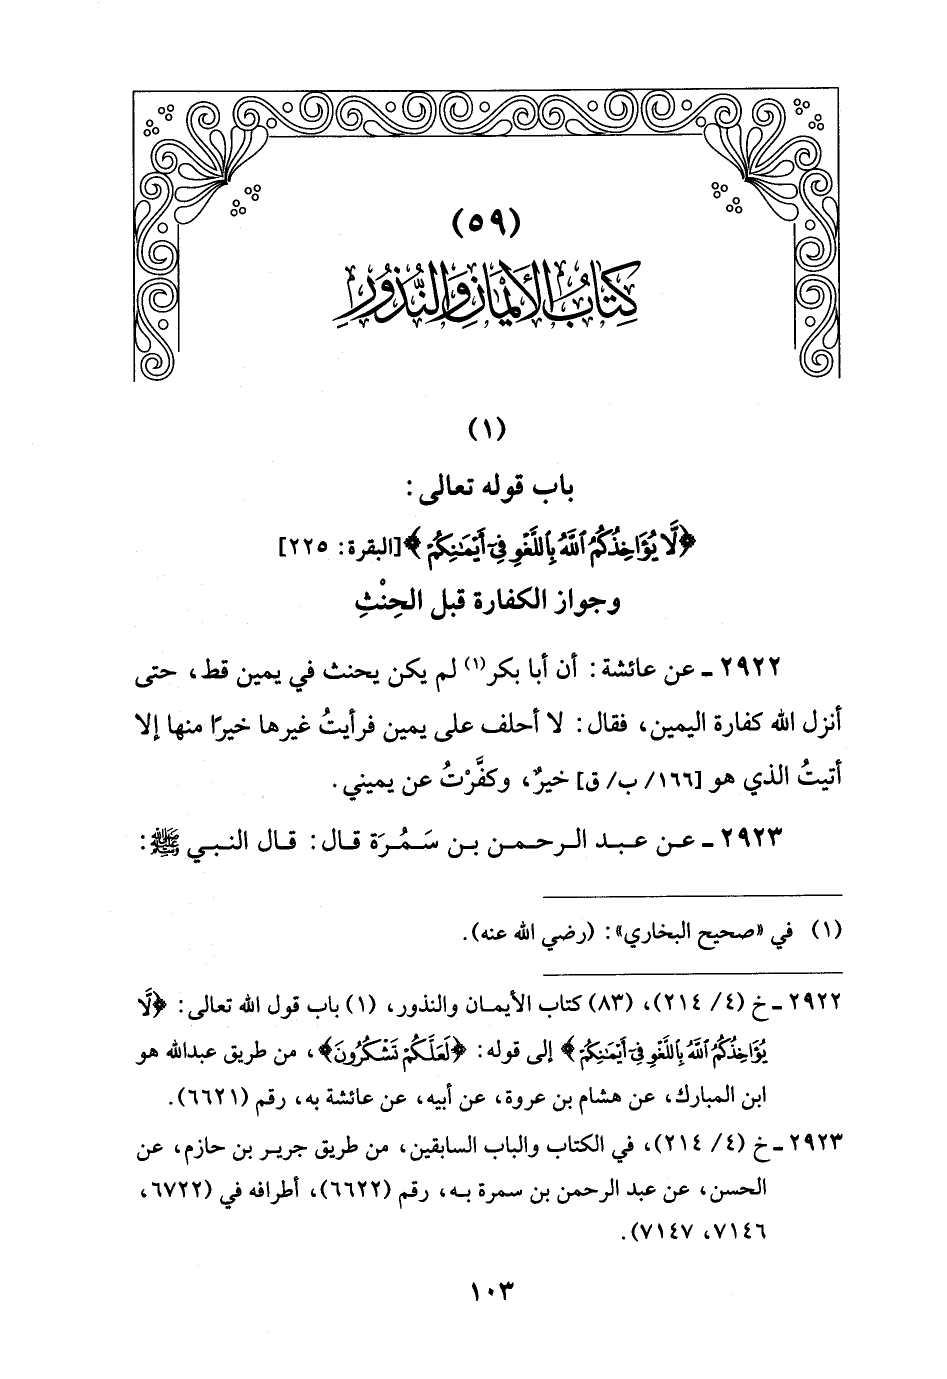 (٥٩)
كِتَابُ الأَيْمَانِ وَالنُّذُورِ
(١)
باب قوله تعالى:
﴿لَّا يُؤَاخِذُكُمُ ٱللَّهُ بِٱللَّغْوِ فِىٓ أَيْمَٰنِكُمْ﴾[البقرة: ٢٢٥]
وجواز الكفارة قبل الحِنْثِ
٢٩٢٢ ـ عن عائشة: أن أبا بكر(١) لم يكن يحنث في يمين قط، حتى
أنزل الله كفارة اليمين، فقال: لا أحلف على يمين فرأيتُ غيرها خيرًا منها إلا
أتيتُ الذي هو [١٦٦/ ب/ ق] خيرٌ، وكفَّرْتُ عن يميني.
٢٩٢٣ ـ عن عبد الرحمن بن سَمُرَة قال: قال النبي ﷺ:
(١) في «صحيح البخاري»: (رضي الله عنه).
٢٩٢٢ ـ خ (٤/ ٢١٤)، (٨٣) كتاب الأيمان والنذور، (١) باب قول الله تعالى: ﴿لَّا
يُؤَاخِذُكُمُ ٱللَّهُ بِٱللَّغْوِ فِىٓ أَيْمَٰنِكُمْ﴾ إلى قوله: ﴿لَعَلَّكُمْ تَشْكُرُونَ﴾، من طريق عبدالله هو
ابن المبارك، عن هشام بن عروة، عن أبيه، عن عائشة به، رقم (٦٦٢١).
٢٩٢٣ ـ خ (٤/ ٢١٤)، في الكتاب والباب السابقين، من طريق جرير بن حازم، عن
الحسن، عن عبد الرحمن بن سمرة به، رقم (٦٦٢٢)، أطرافه في (٦٧٢٢،
٧١٤٦، ٧١٤٧).
١٠٣